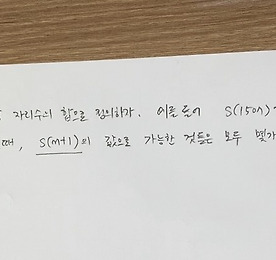 자리수의 합으로 정의하자. 이를테어 S(1501)
때, S(m+1)의 값으로 가능한 것들은 모두 몇가